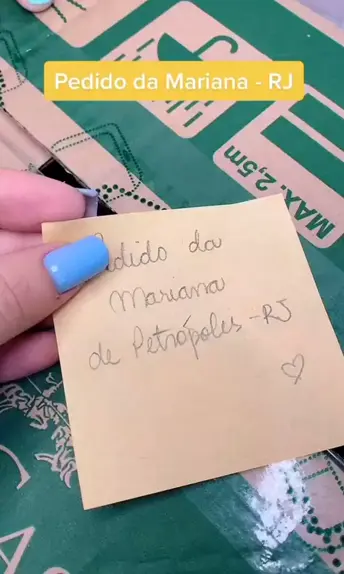 Pedido da Mariana - RJ
MAX. 2,5m
Pedido da
Mariana
de Petrópolis - RJ